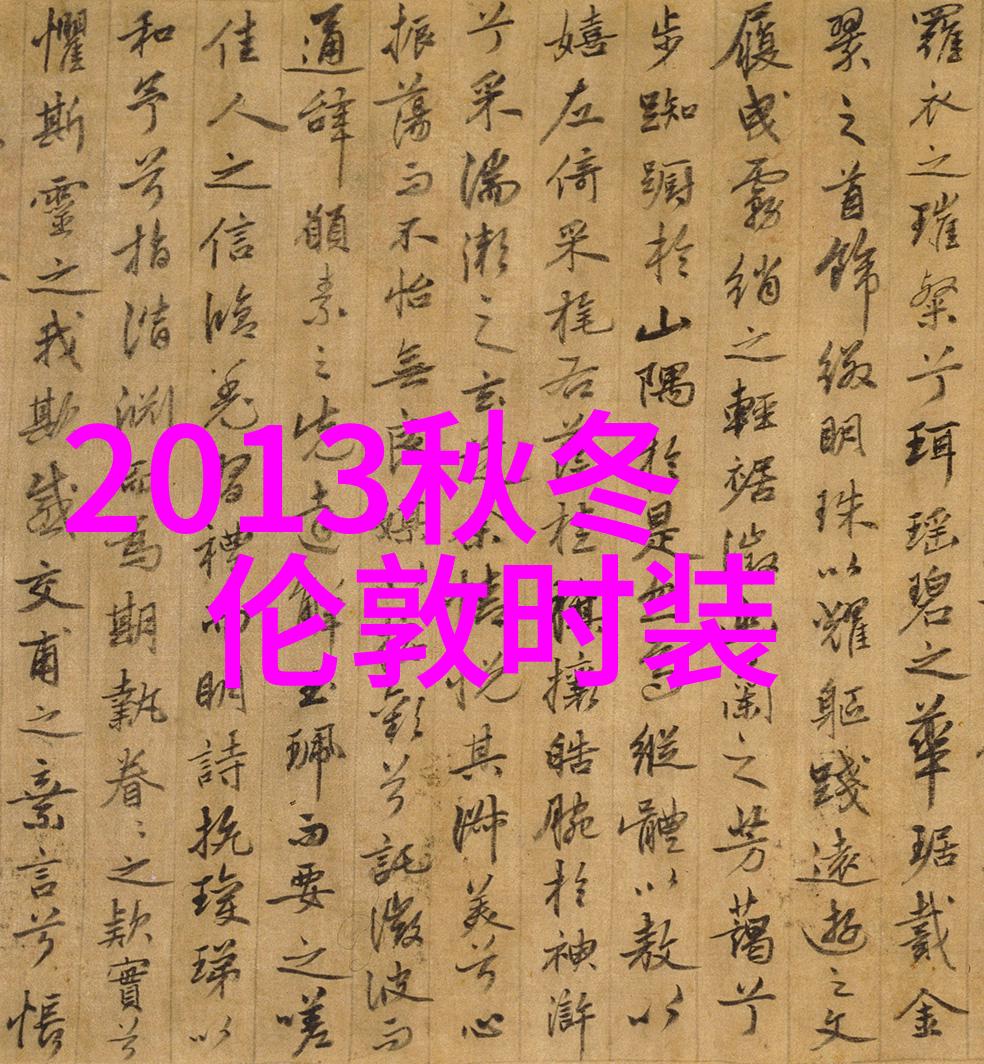 羅衣之璀粲兮珥瑤碧之華琚戴金
翠之首飾綴明珠以耀軀踐遠遊之文
履曳霧綃之輕裾微幽蘭之芳藹兮
步踟躕於山隅於是忽焉縱體以敖以
嬉左倚采旄右蔭桂旗攘皓腕於神滸
兮采湍瀨之玄芝余情悅其淑美兮心
振蕩而不怡無良媒歡兮託微波而
通辭願素之先達解玉珮而要之嗟
佳人之信脩羌習禮而明詩抗瓊珶以
和予兮指潛淵而為期執眷〻之款實兮
懼斯靈之我欺感交甫之棄言兮悵
2013秋冬
伦敦时装